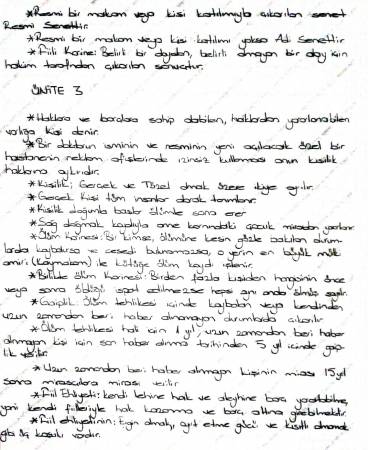 *Resmi bir makam veya kişi katılımıyla çıkarılan senet
Resmi Senettir.
*Resmi bir makam veya kişi katılımı yoksa Adi Senettir
*Fiili Karine: Belirli bir olaydan, belirli olmayan bir olay için
hakim tarafından çıkarılan sonuçtur.
ÜNİTE 3
*Haklara ve borçlara sahip olabilen, haklardan yararlanabilen
varlığa Kişi denir.
*Bir doktorun isminin ve resminin yeni açılacak özel bir
hastanenin reklam afişlerinde izinsiz kullanması onun kişilik
hakkına aykırıdır.
*Kişilik; Gerçek ve Tüzel olmak üzere ikiye ayrılır.
*Gerçek Kişi tüm insanlar olarak tanımlanır.
*Kişilik doğumla başlar ölümle sona erer
*Sağ doğmak kaydıyla anne karnındaki çocuk mirastan yararlanır
*Ölüm Karinesi: Bir kimse, ölümüne kesin gözle bakılan durum-
larda kaybolursa ve cesedi bulunamazsa, o yerin en büyük mülki
amiri (Kaymakam) ile kütüğe ölüm kaydı işlenir.
*Birlikte Ölüm Karinesi: Birden fazla kişiden hangisinin önce
veya sonra öldüğü ispat edilmezse hepsi aynı anda ölmüş sayılır.
*Gaiplik: Ölüm tehlikesi içinde kaybolan veya kendinden
uzun zamandan beri haber alınamayan durumlarda çıkarılır
*Ölüm tehlikesi hali için 1 yıl, uzun zamandan beri haber
alınmayan kişi için son haber alınma tarihinden 5 yıl içinde gaip-
lik verilir.
*Uzun zamandan beri haber alınmayan kişinin mirası 15 yıl
sonra mirasçılara mirası verilir
*Fiil Ehliyeti: kendi lehine hak ve aleyhine borç yaratabilme,
yani kendi fiilleriyle hak kazanma ve borç altına girebilmektir.
*Fiil ehliyetinin: Ergin olmak, ayırt etme gücü ve kısıtlı olmamak
gibi üç koşulu vardır.